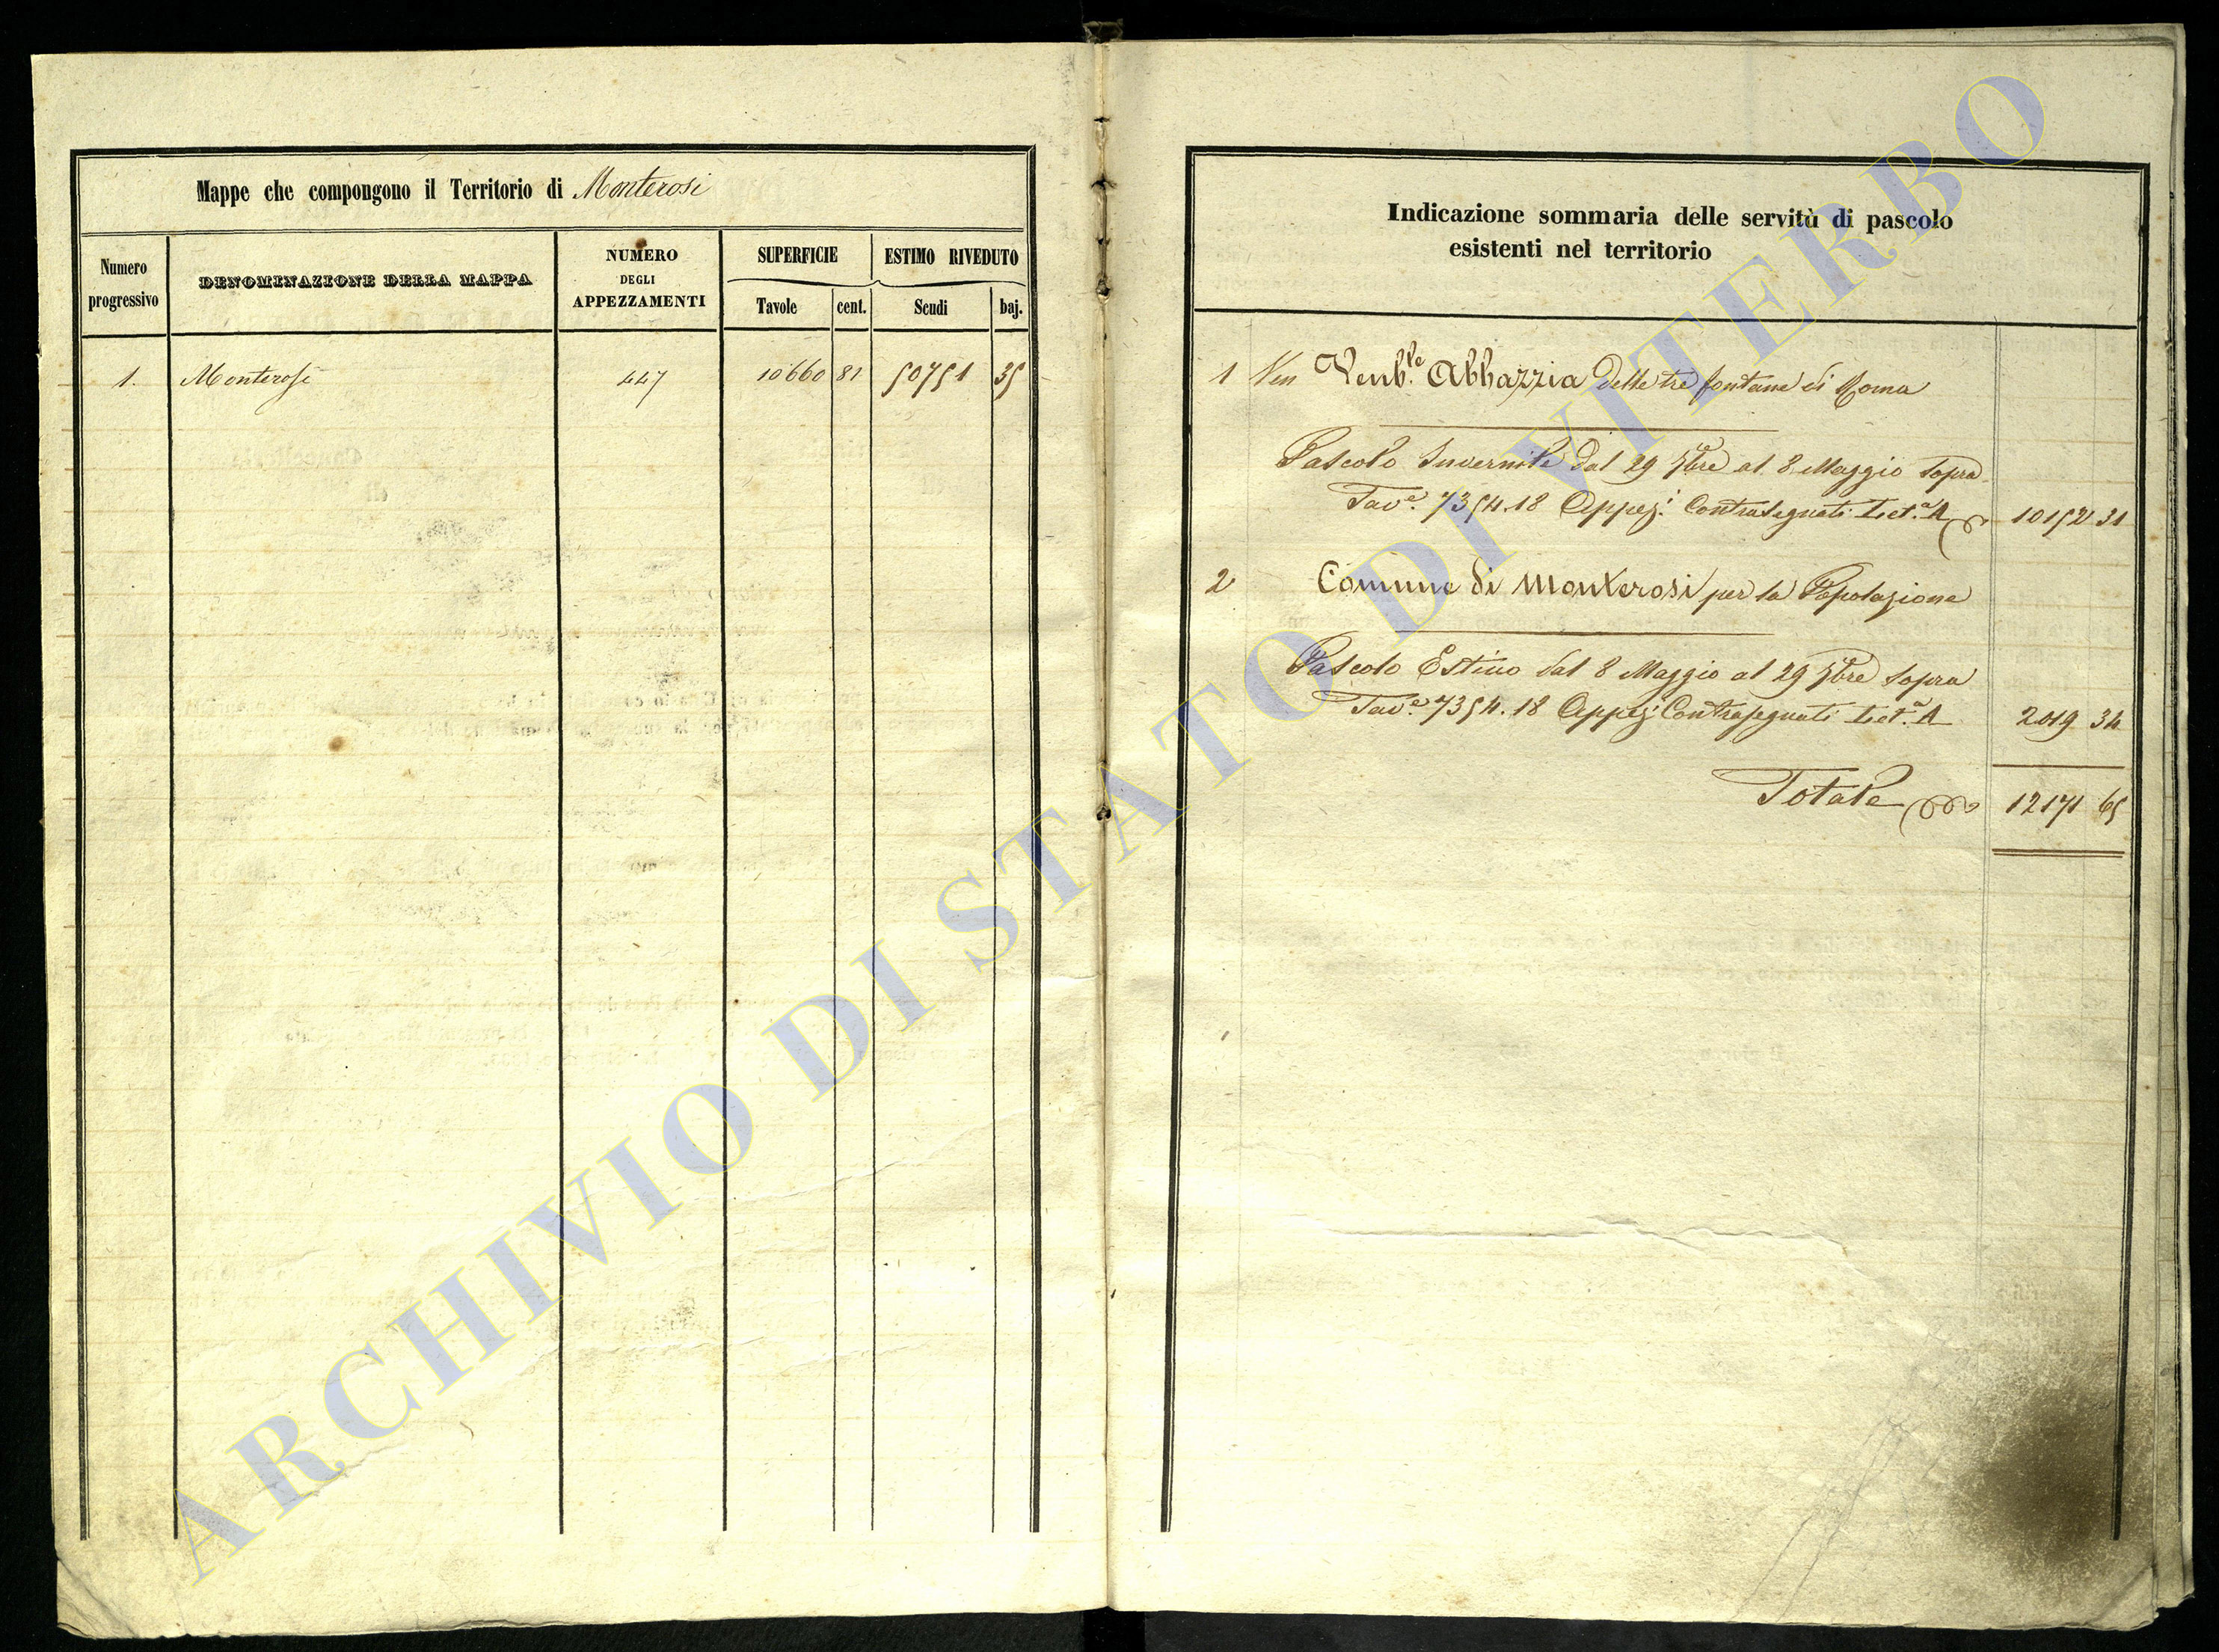 Mappe che compongono il Territorio di Monterosi
Numero progressivo
DENOMINAZIONE DELLA MAPPA
NUMERO DEGLI APPEZZAMENTI
SUPERFICIE
ESTIMO RIVEDUTO
Tavole cent. Scudi baj.
1. Monterosi 447 10660 81 50751 35
Indicazione sommaria delle servitù di pascolo
esistenti nel territorio
1 Ven Venb.le Abbazzia delle tre fontane di Roma
Pascolo Invernile dal 29 7bre al 8 Maggio sopra
Tav.e 7354.18 Appez.i Contrasegnati Lett.a A 10152 31
2 Comune di Monterosi per la Popolazione
Pascolo Estivo dal 8 Maggio al 29 7bre sopra
Tav.e 7354.18 Appez.i Contrasegnati Lett.a A 2019 34
Totale 12171 65
ARCHIVIO DI STATO DI VITERBO